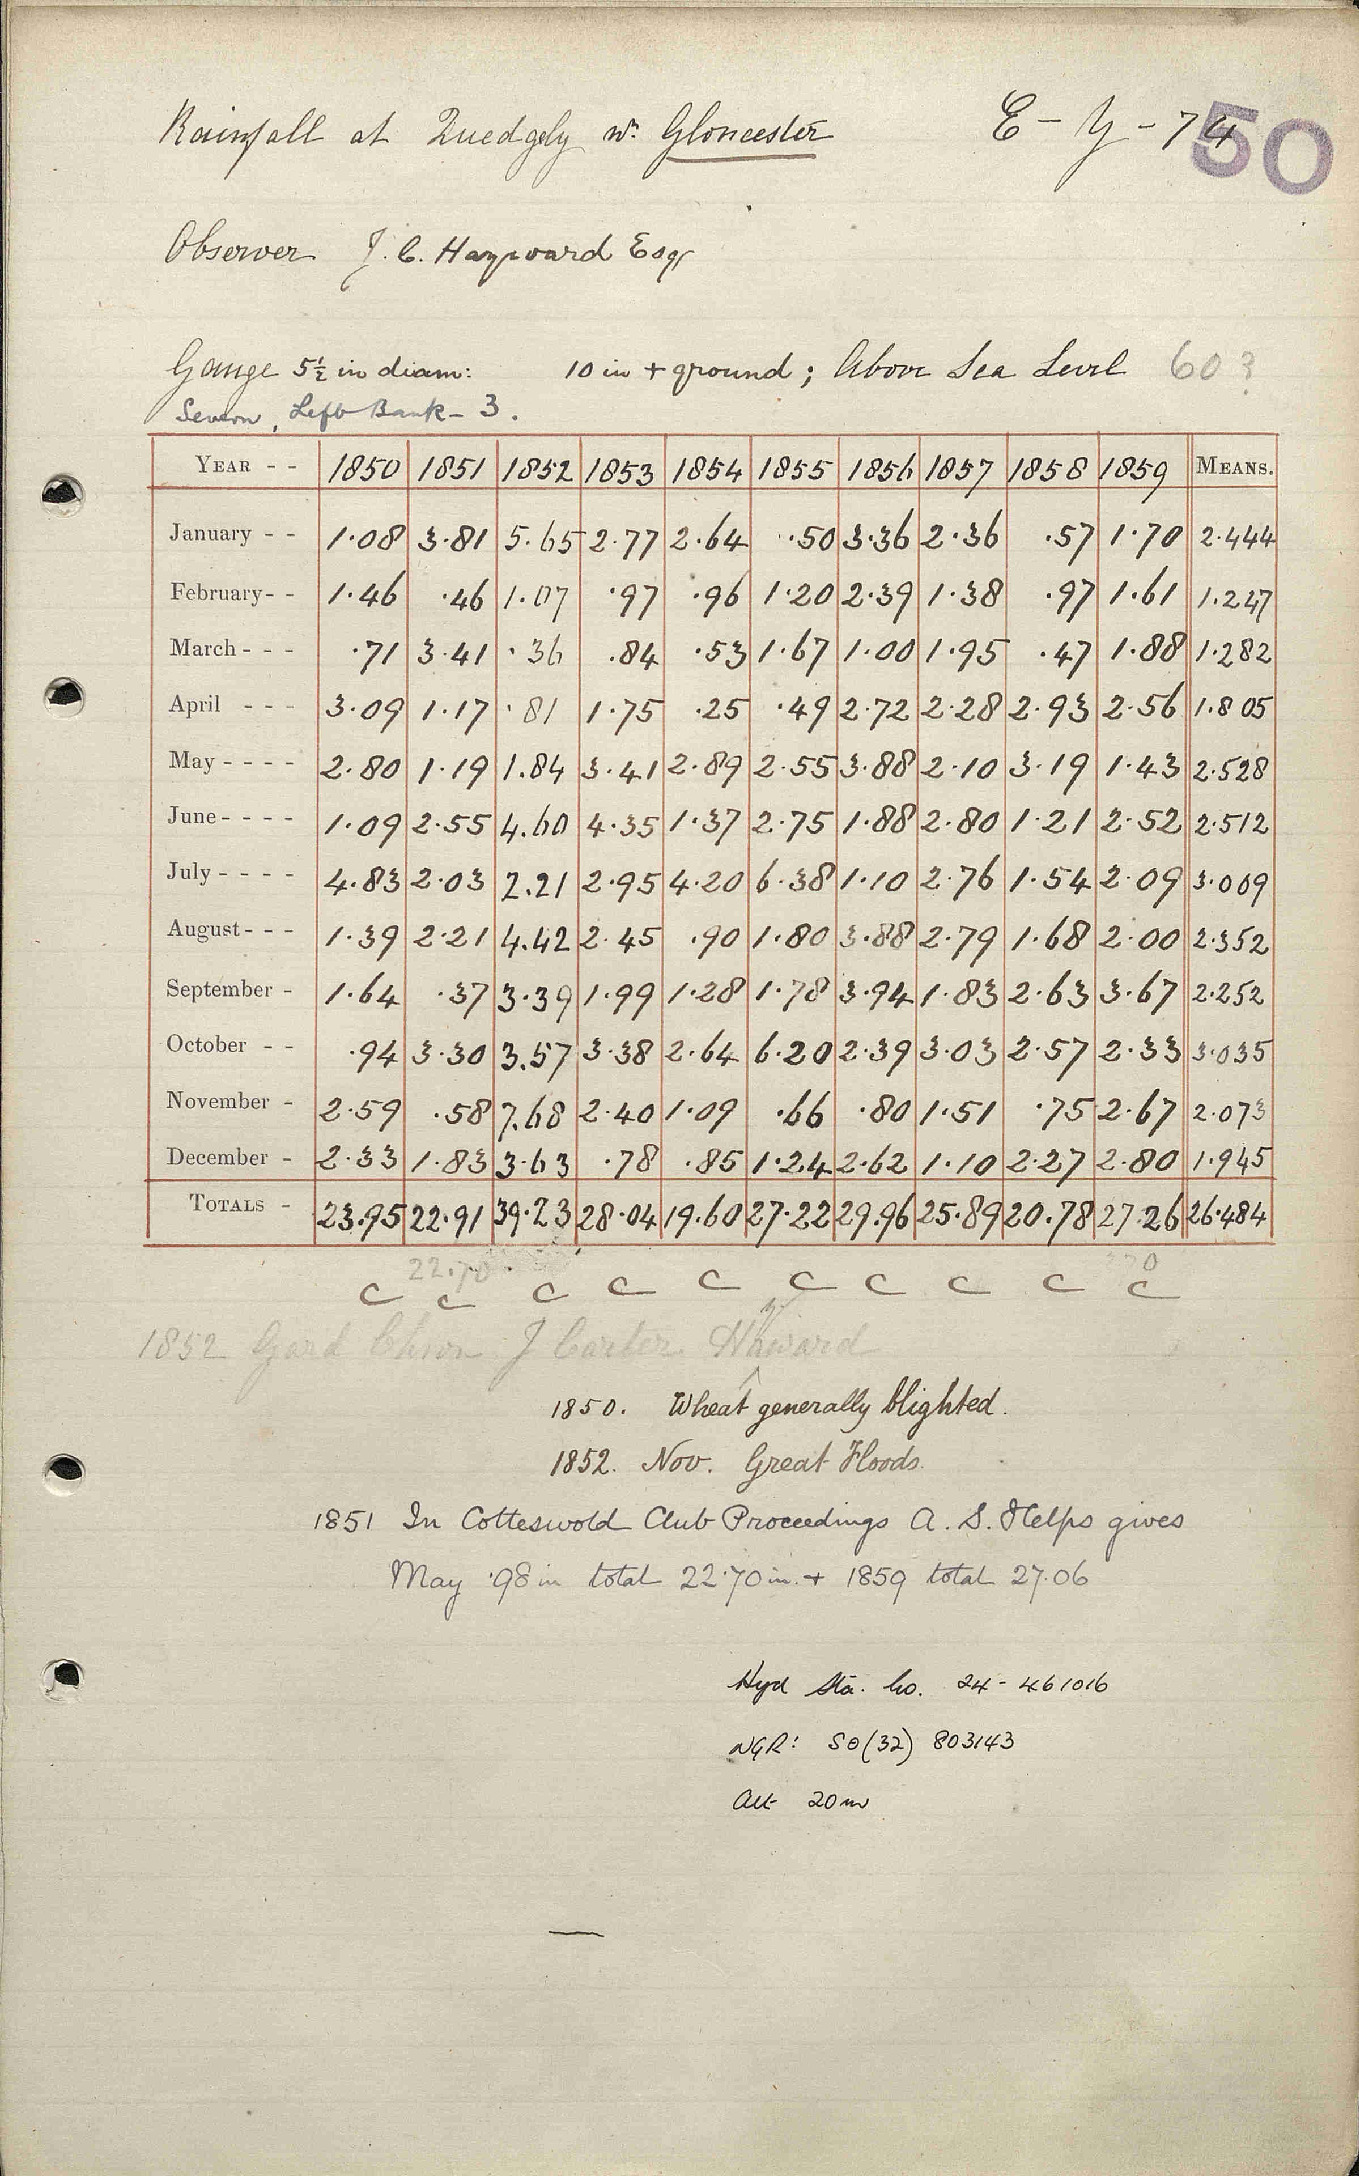 Rainfall at Quedgely nr. Gloucester E - y - 74 50
Observer J. C. Hayward Esqr
Gauge 5½ in diam: 10 in + ground ; Above Sea Level 60?
Severn, Left Bank - 3.
YEAR - - 1850 1851 1852 1853 1854 1855 1856 1857 1858 1859 MEANS.
January - - 1.08 3.81 5.65 2.77 2.64 .50 3.36 2.36 .57 1.70 2.444
February - - 1.46 .46 1.07 .97 .96 1.20 2.39 1.38 .97 1.61 1.247
March - - - .71 3.41 .36 .84 .53 1.67 1.00 1.95 .47 1.88 1.282
April - - - 3.09 1.17 .81 1.75 .25 .49 2.72 2.28 2.93 2.56 1.805
May - - - - 2.80 1.19 1.84 3.41 2.89 2.55 3.88 2.10 3.19 1.43 2.528
June - - - - 1.09 2.55 4.60 4.35 1.37 2.75 1.88 2.80 1.21 2.52 2.512
July - - - - 4.83 2.03 2.21 2.95 4.20 6.38 1.10 2.76 1.54 2.09 3.009
August - - - 1.39 2.21 4.42 2.45 .90 1.80 3.88 2.79 1.68 2.00 2.352
September - 1.64 .37 3.39 1.99 1.28 1.78 3.94 1.83 2.63 3.67 2.252
October - - .94 3.30 3.57 3.38 2.64 6.20 2.39 3.03 2.57 2.33 3.035
November - 2.59 .58 7.68 2.40 1.09 .66 .80 1.51 .75 2.67 2.073
December - 2.33 1.83 3.63 .78 .85 1.24 2.62 1.10 2.27 2.80 1.945
TOTALS - 23.95 22.91 39.23 28.04 19.60 27.22 29.96 25.89 20.78 27.26 26.484
22.70
C C C C C C C C C C
1852 Gard Chron J Carter Hayward
1850. Wheat generally blighted.
1852. Nov. Great Floods.
1851 In Cotteswold Club Proceedings A. S. Helps gives
May .98 in total 22.70 in. + 1859 total 27.06
Hyd Sta. No. 24 - 461016
NGR: SO (32) 803143
Alt 20m